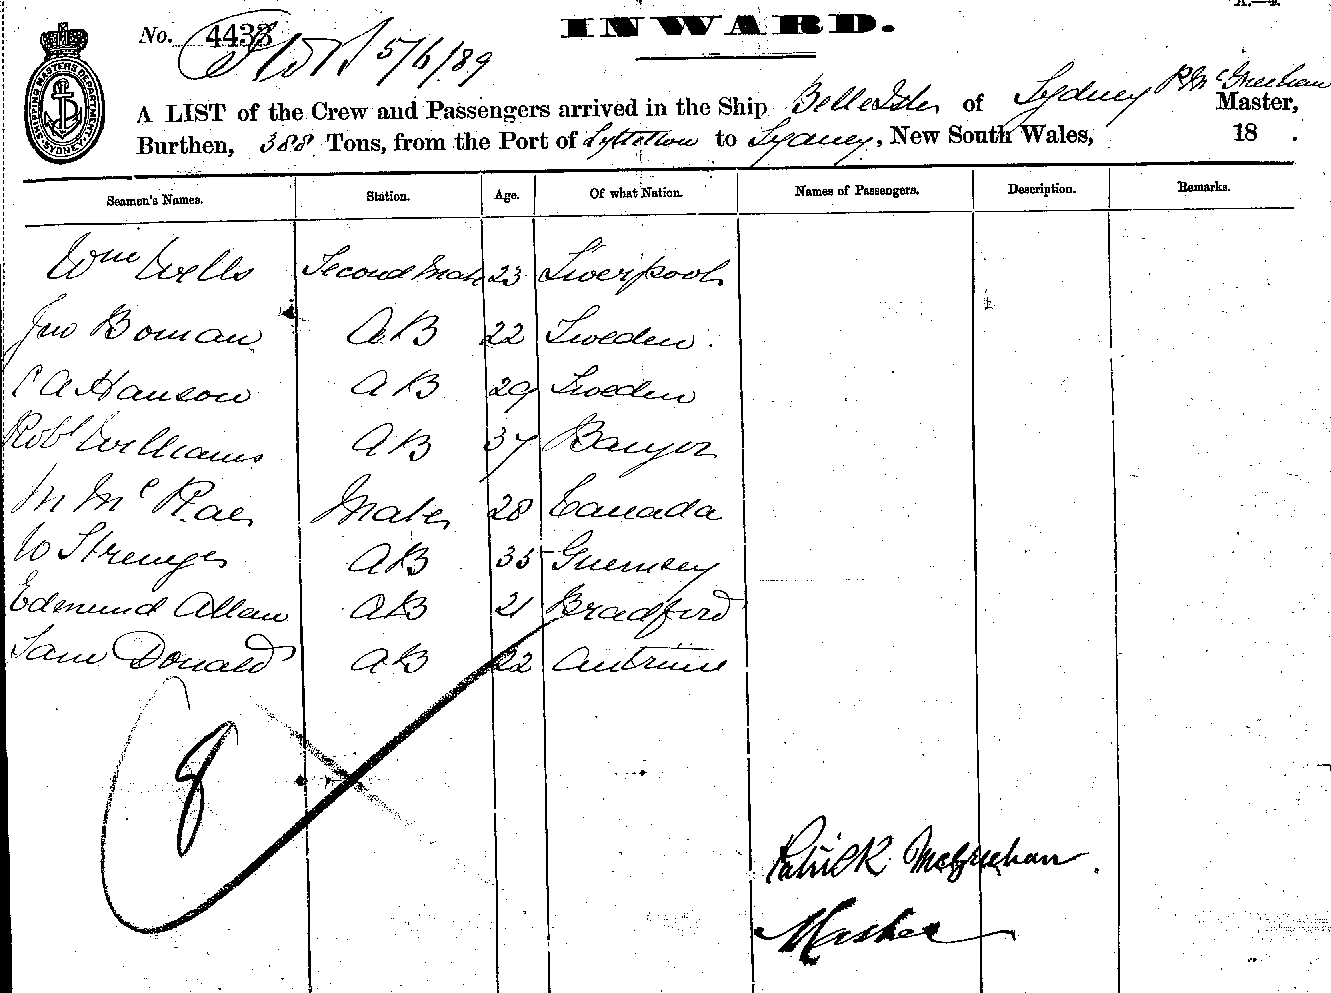 A.—4.
No. 4433 5/6/89
INWARD.
SHIPPING MASTERS DEPARTMENT SYDNEY
A LIST of the Crew and Passengers arrived in the Ship Belle Isle of Sydney P. McGreehan Master,
Burthen, 388 Tons, from the Port of Lyttelton to Sydney, New South Wales, 18 .
Seamen's Names. Station. Age. Of what Nation. Names of Passengers. Description. Remarks.
Wm Wells Second Mate 23 Liverpool
Jno Boman AB 22 Sweden
A Hanson AB 29 Sweden
Robt Williams AB 37 Bangor
M McRae Mate 28 Canada
W AB 35 Guernsey
Edmund Allan AB 21 Bradford
Sam Donald AB 22 Antrim
8
Patrick McGreehan
Master